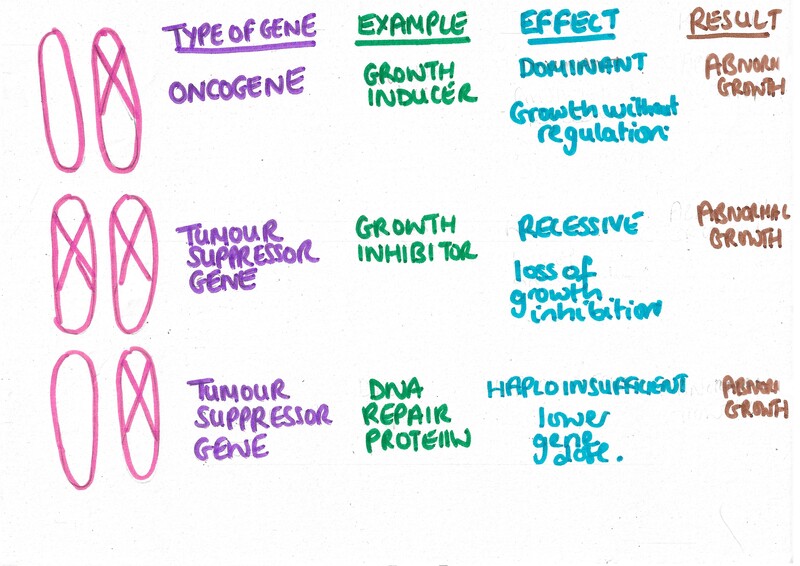 TYPE OF GENE EXAMPLE EFFECT RESULT
ONCOGENE
GROWTH
INDUCER
DOMINANT
Growth without
regulation.
ABNORM
GROWTH
TUMOUR
SUPPRESSOR
GENE
GROWTH
INHIBITOR
RECESSIVE
loss of
growth
inhibition
ABNORMAL
GROWTH
TUMOUR
SUPPRESSOR
GENE
DNA
REPAIR
PROTEIIN
HAPLOINSUFFICIENT
lower
gene
ABNORM
GROWTH